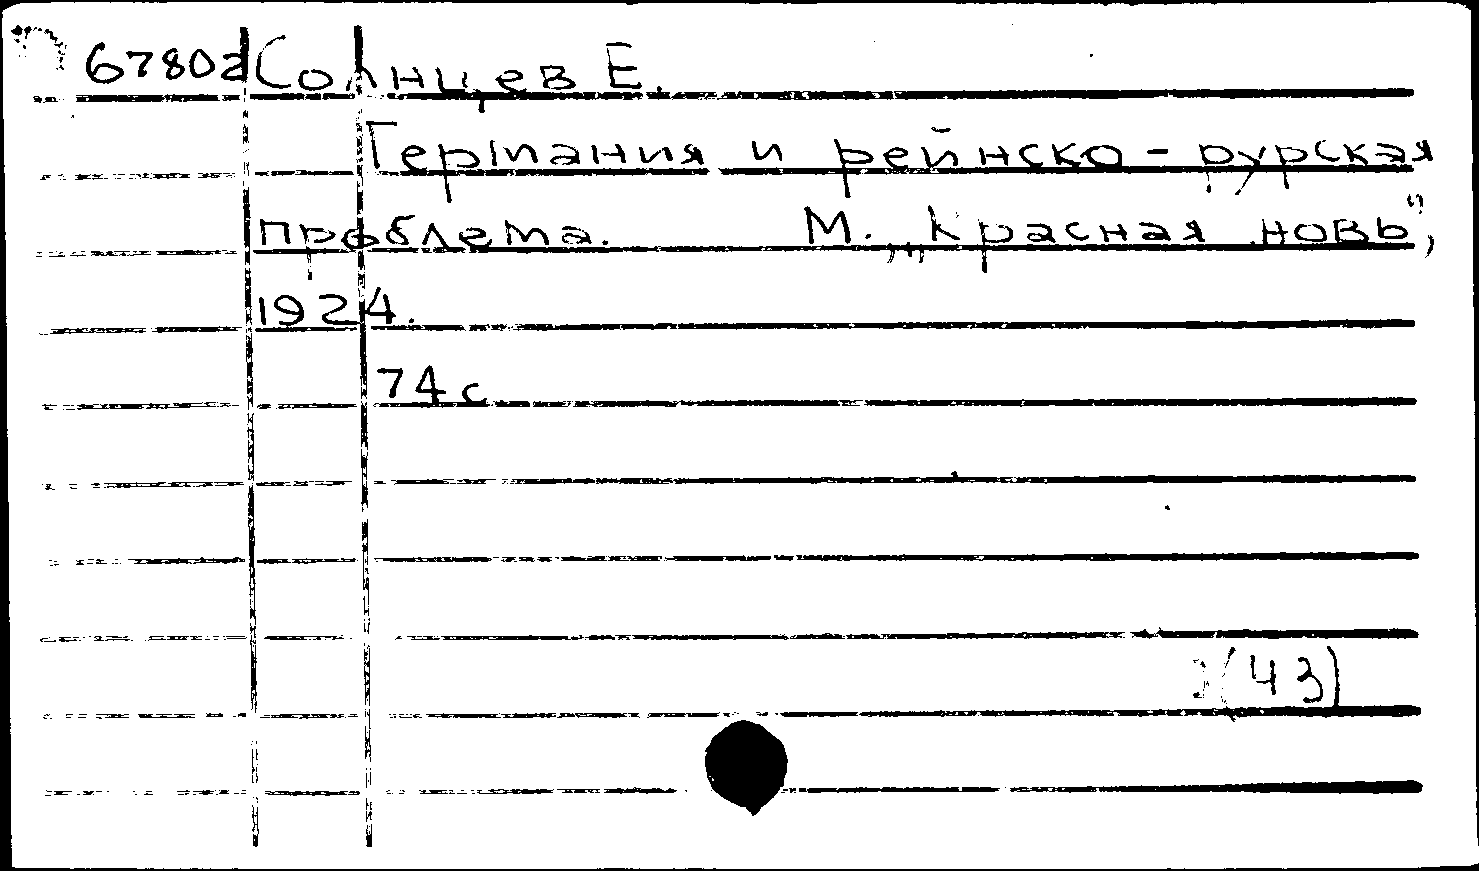 67802 Солнцев Е.
Германия и рейнско-рурская
проблема. М., „Красная новь",
1924.
74 с
(43)